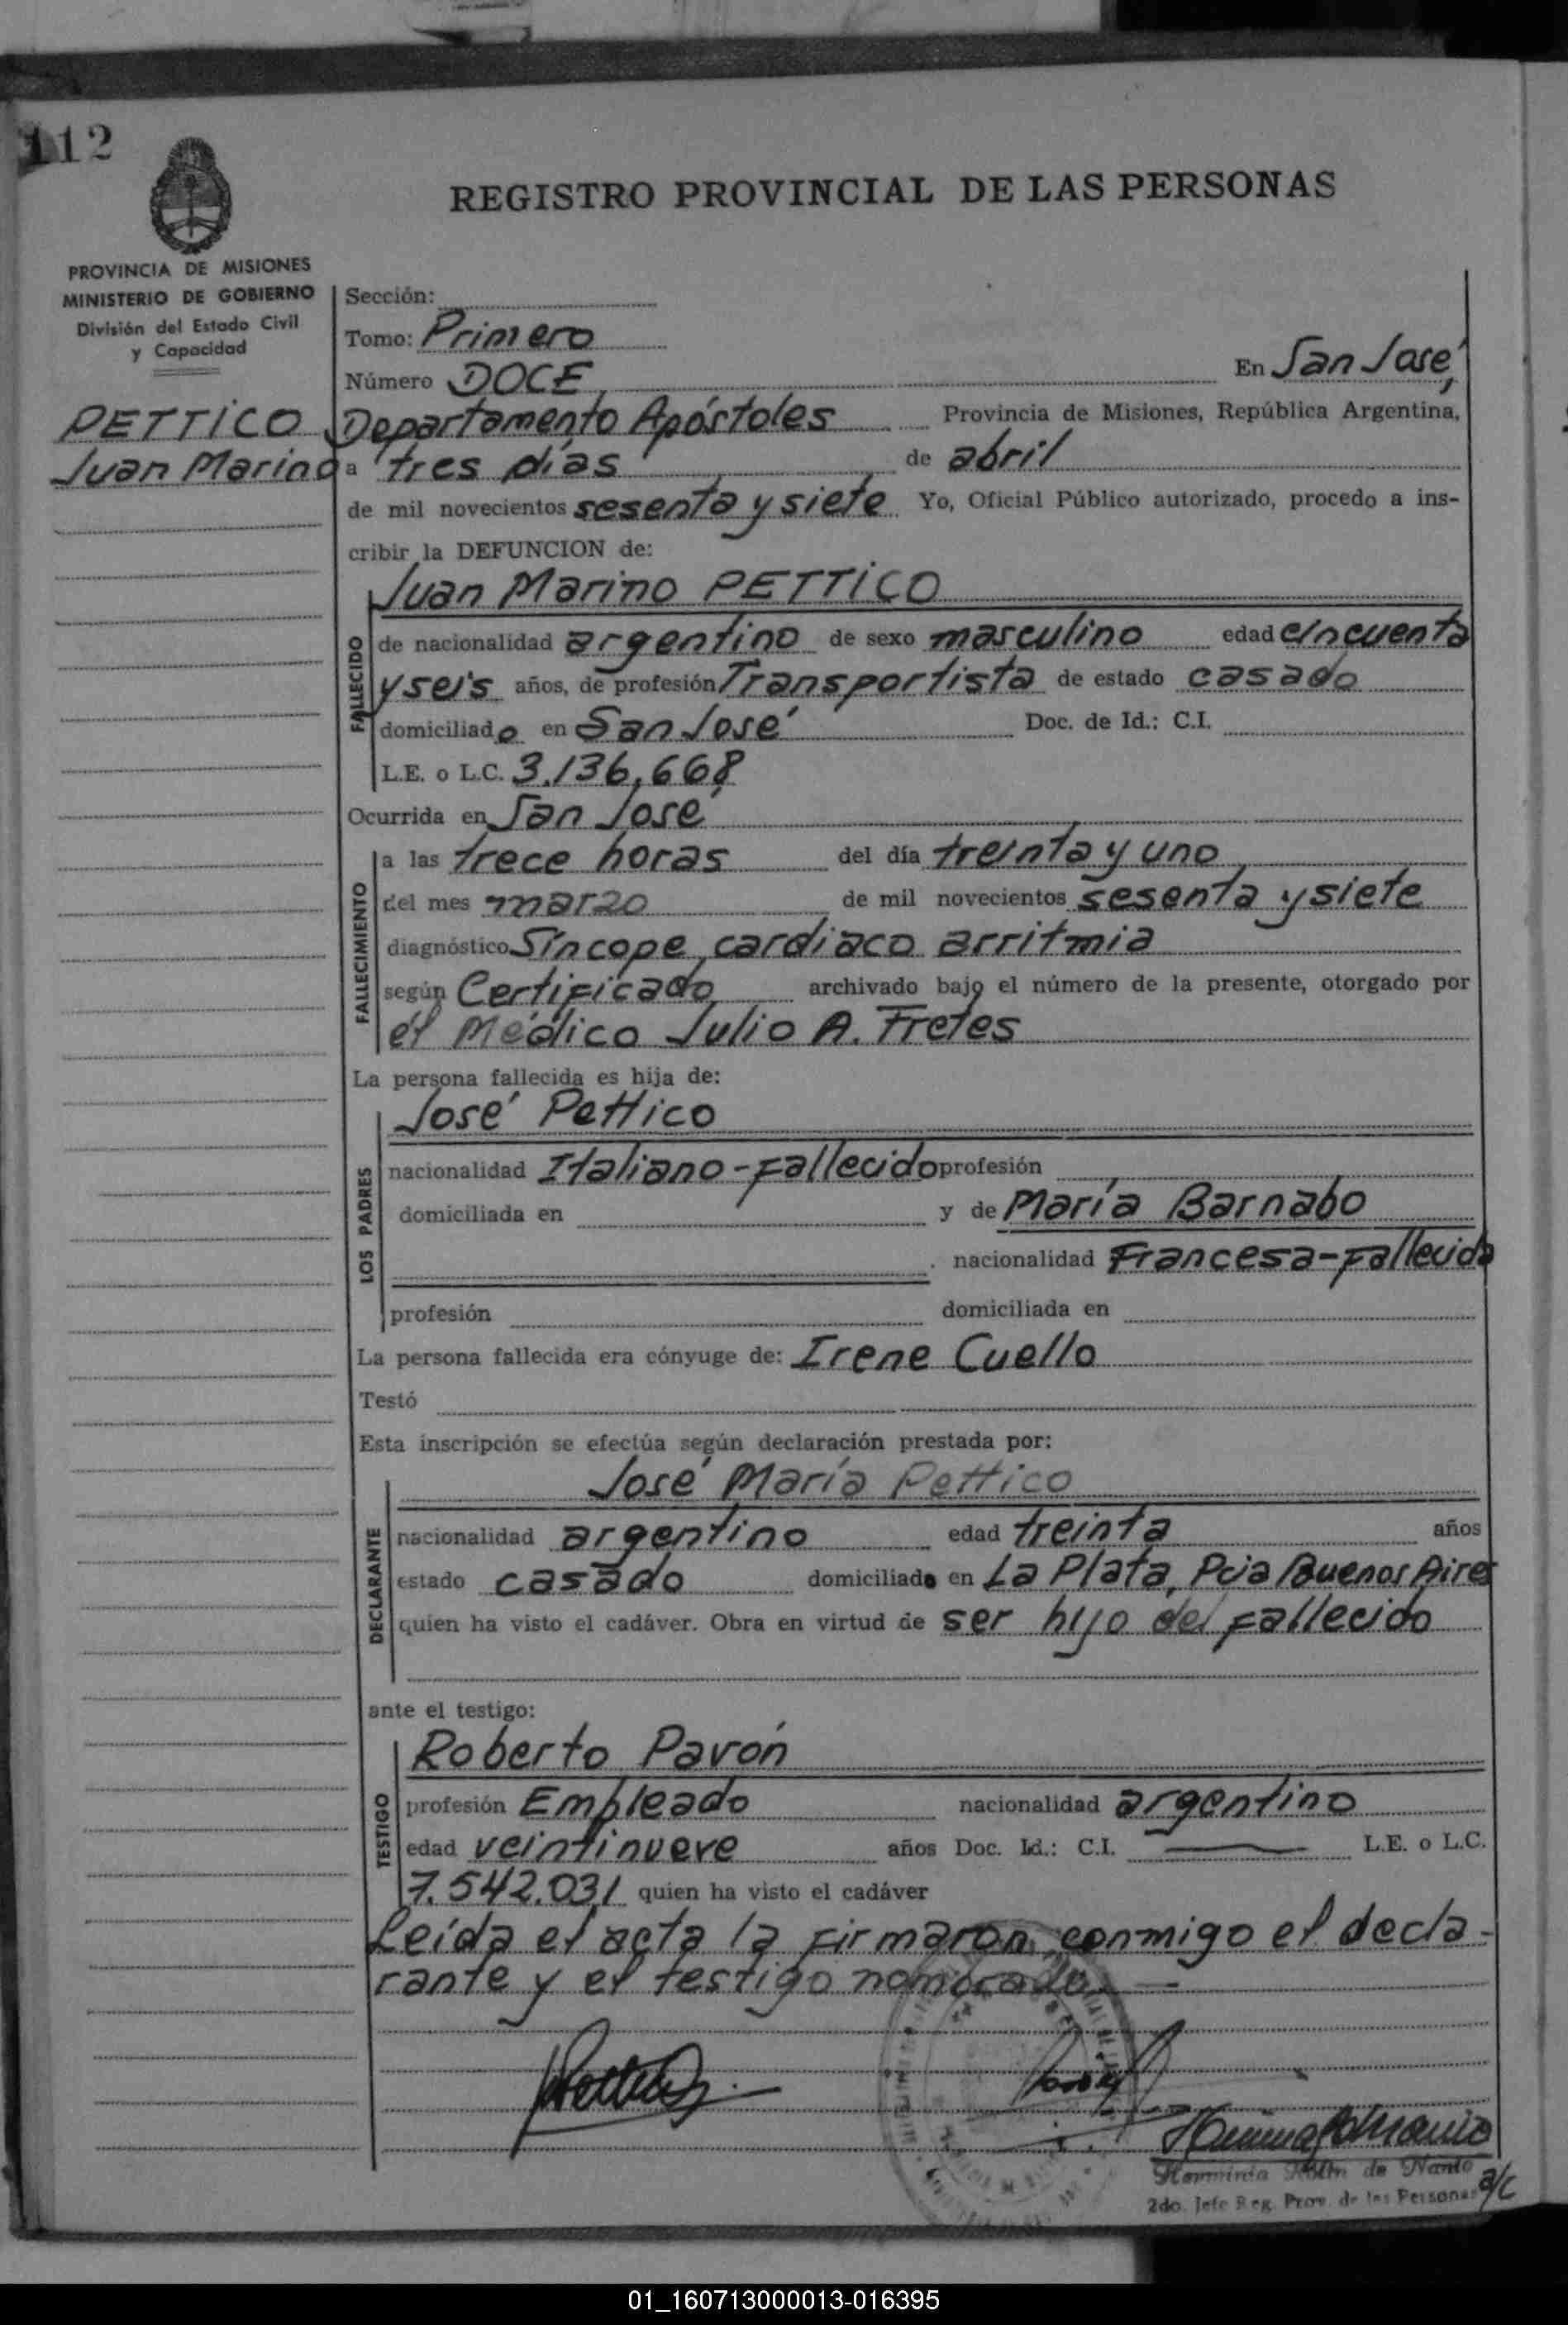 112
REGISTRO PROVINCIAL DE LAS PERSONAS
PROVINCIA DE MISIONES
MINISTERIO DE GOBIERNO
División del Estado Civil
y Capacidad
PETTICO
Juan Marino
Sección:
Tomo: Primero
Número DOCE En San José,
Departamento Apóstoles Provincia de Misiones, República Argentina,
a tres días de abril
de mil novecientos sesenta y siete Yo, Oficial Público autorizado, procedo a ins-
cribir la DEFUNCION de:
Juan Marino PETTICO
FALLECIDO
de nacionalidad argentino de sexo masculino edad cincuenta
y seis años, de profesión Transportista de estado casado
domiciliado en San José Doc. de Id.: C.I.
L.E. o L.C. 3.136.668
Ocurrida en San José
FALLECIMIENTO
a las trece horas del día treinta y uno
del mes marzo de mil novecientos sesenta y siete
diagnóstico Síncope cardiaco arritmia
según Certificado archivado bajo el número de la presente, otorgado por
el Médico Julio A. Fretes
La persona fallecida es hija de:
LOS PADRES
José Pettico
nacionalidad Italiano-fallecido profesión
domiciliada en y de María Barnabo
nacionalidad Francesa-fallecida
profesión domiciliada en
La persona fallecida era cónyuge de: Irene Cuello
Testó
Esta inscripción se efectúa según declaración prestada por:
DECLARANTE
José María Pettico
nacionalidad argentino edad treinta años
estado casado domiciliado en La Plata, Pcia Buenos Aires
quien ha visto el cadáver. Obra en virtud de ser hijo del fallecido
ante el testigo:
TESTIGO
Roberto Pavón
profesión Empleado nacionalidad argentino
edad veintinueve años Doc. Id.: C.I. L.E. o L.C.
7.542.031 quien ha visto el cadáver
Leída el acta la firmaron conmigo el decla-
rante y el testigo nombrado.
Herminia de Nanio a/c
2do. Jefe Reg. Prov. de las Personas
01_160713000013-016395